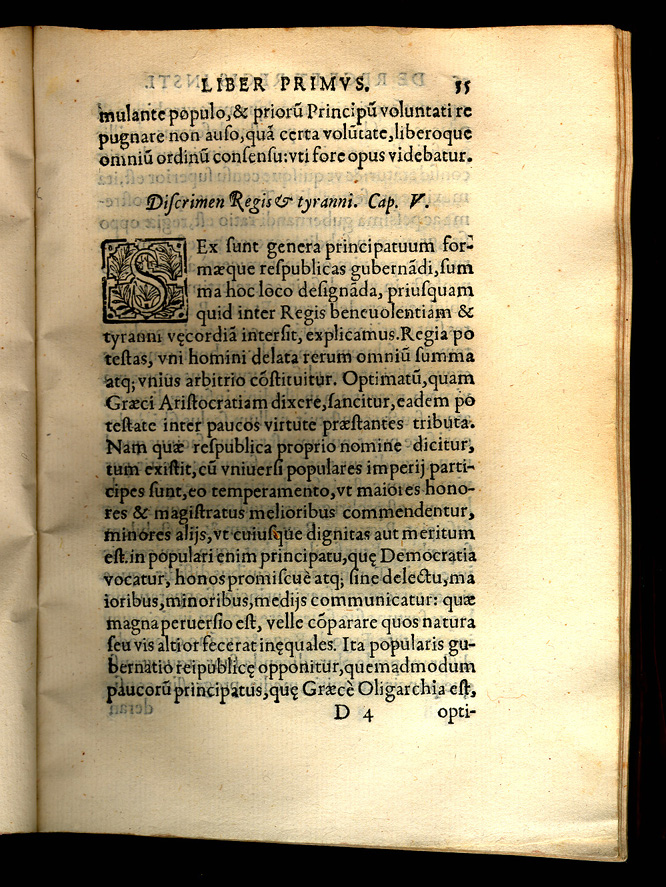 LIBER PRIMVS. 55
mulante populo, & priorũ Principũ voluntati re
pugnare non auſo, quã certa volũtate, liberoque
omniũ ordinũ conſenſu: vti fore opus videbatur.
Diſcrimen Regis & tyranni. Cap. V.
SEx ſunt genera principatuum for-
mæque reſpublicas gubernãdi, ſum
ma hoc loco deſignãda, priuſquam
quid inter Regis beneuolentiam &
tyranni vęcordiã interſit, explicamus. Regia po
teſtas, vni homini delata rerum omniũ ſumma
atq; vnius arbitrio cõſtituitur. Optimatũ, quam
Græci Ariſtocratiam dixere, ſancitur, eadem po
teſtate inter paucos virtute præſtantes tributa.
Nam quæ reſpublica proprio nomine dicitur,
tum exiſtit, cũ vniuerſi populares imperij parti-
cipes ſunt, eo temperamento, vt maiores hono-
res & magiſtratus melioribus commendentur,
minores alijs, vt cuiuſque dignitas aut meritum
eſt. in populari enim principatu, quę Democratia
vocatur, honos promiſcuè atq; ſine delectu, ma
ioribus, minoribus, medijs communicatur: quæ
magna peruerſio eſt, velle cõparare quos natura
ſeu vis altior fecerat inęquales. Ita popularis gu-
bernatio reipublicę opponitur, quemadmodum
paucorũ principatus, quę Græcè Oligarchia eſt,
D 4 opti-